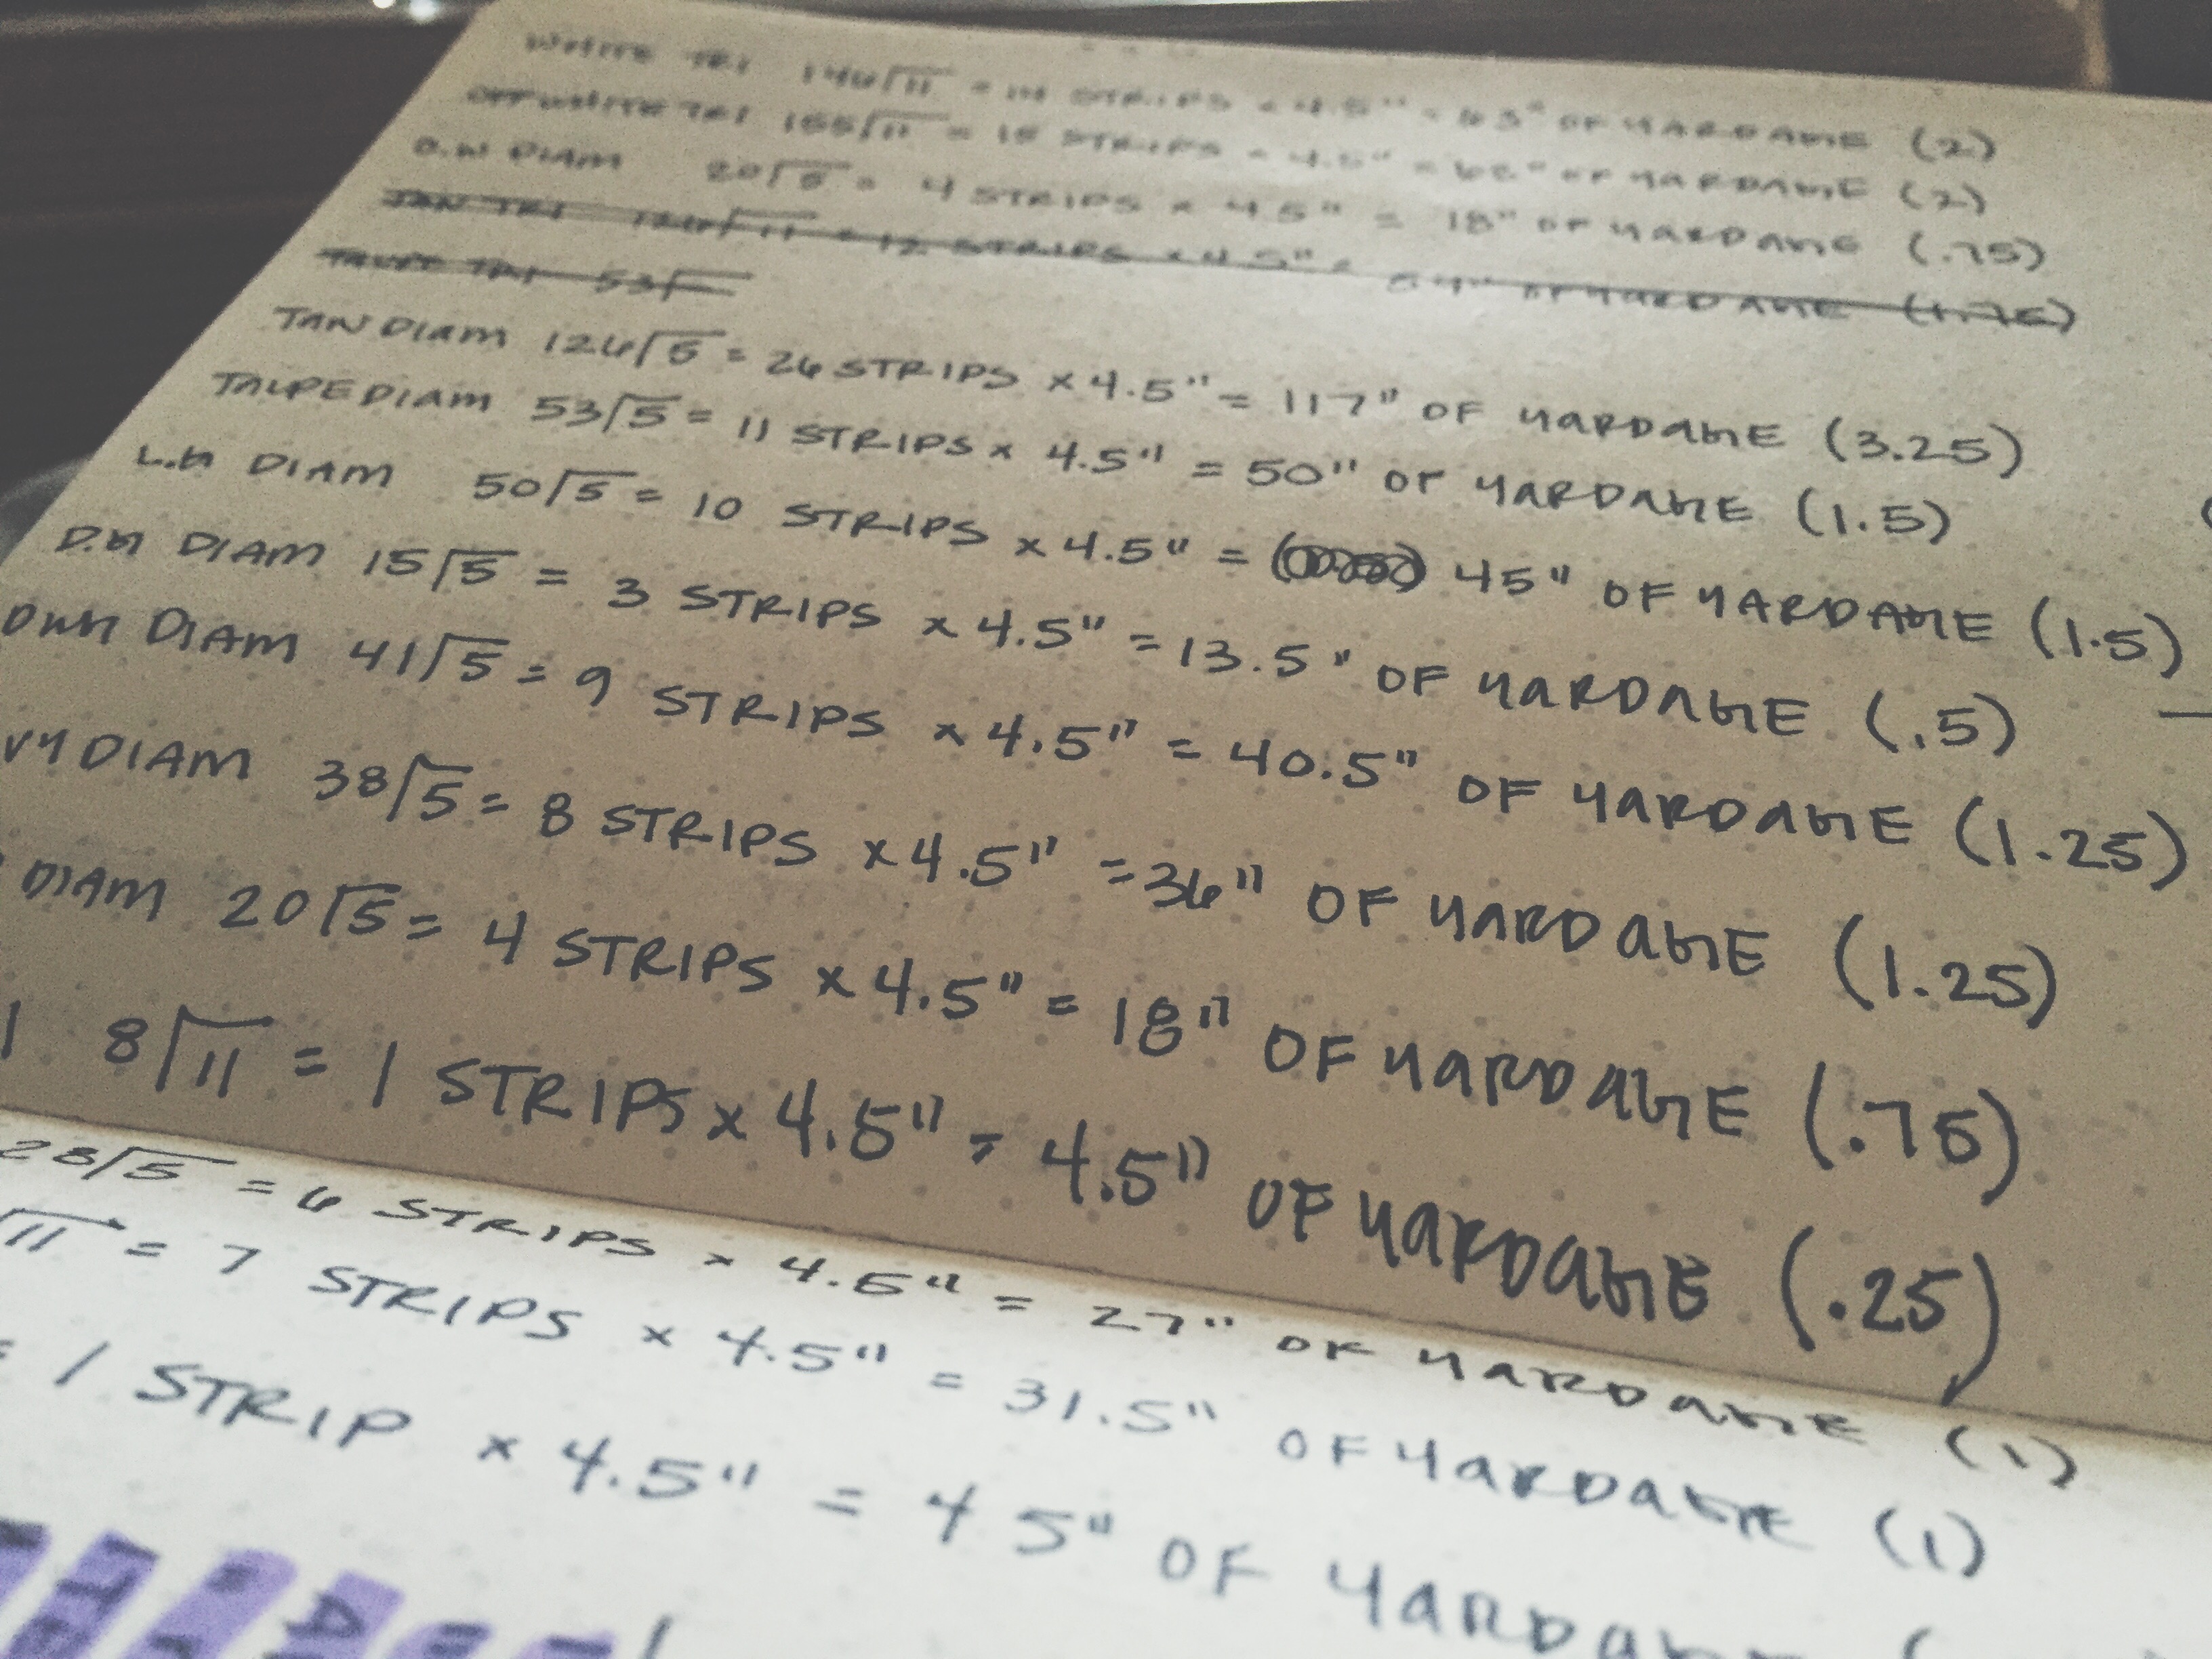 WHITE TRI 146√11 = 14 STRIPS × 4.5" = 63" OF YARDAGE (2)
OFF WHITE TRI 155√11 = 15 STRIPS × 4.5" = 68" OF YARDAGE (2)
O.W DIAM 20√5 = 4 STRIPS × 4.5" = 18" OF YARDAGE (.75)
TAN TRI 126√11 = 12 STRIPS × 4.5" = 54" OF YARDAGE (1.75)
TAUPE TRI 53√
TAN DIAM 126√5 = 26 STRIPS × 4.5" = 117" OF YARDAGE (3.25)
TAUPE DIAM 53√5 = 11 STRIPS × 4.5" = 50" OF YARDAGE (1.5)
L.G DIAM 50√5 = 10 STRIPS × 4.5" = 45" OF YARDAGE (1.5)
D.G DIAM 15√5 = 3 STRIPS × 4.5" = 13.5" OF YARDAGE (.5)
DIAM 41√5 = 9 STRIPS × 4.5" = 40.5" OF YARDAGE (1.25)
VY DIAM 38√5 = 8 STRIPS × 4.5" = 36" OF YARDAGE (1.25)
DIAM 20√5 = 4 STRIPS × 4.5" = 18" OF YARDAGE (.75)
8√11 = 1 STRIPS × 4.5" = 4.5" OF YARDAGE (.25)
28√5 = 6 STRIPS × 4.5" = 27" OF YARDAGE (1)
√11 = 7 STRIPS × 4.5" = 31.5" OF YARDAGE (1)
= 1 STRIP × 4.5" = 4 5" OF YARDAGE